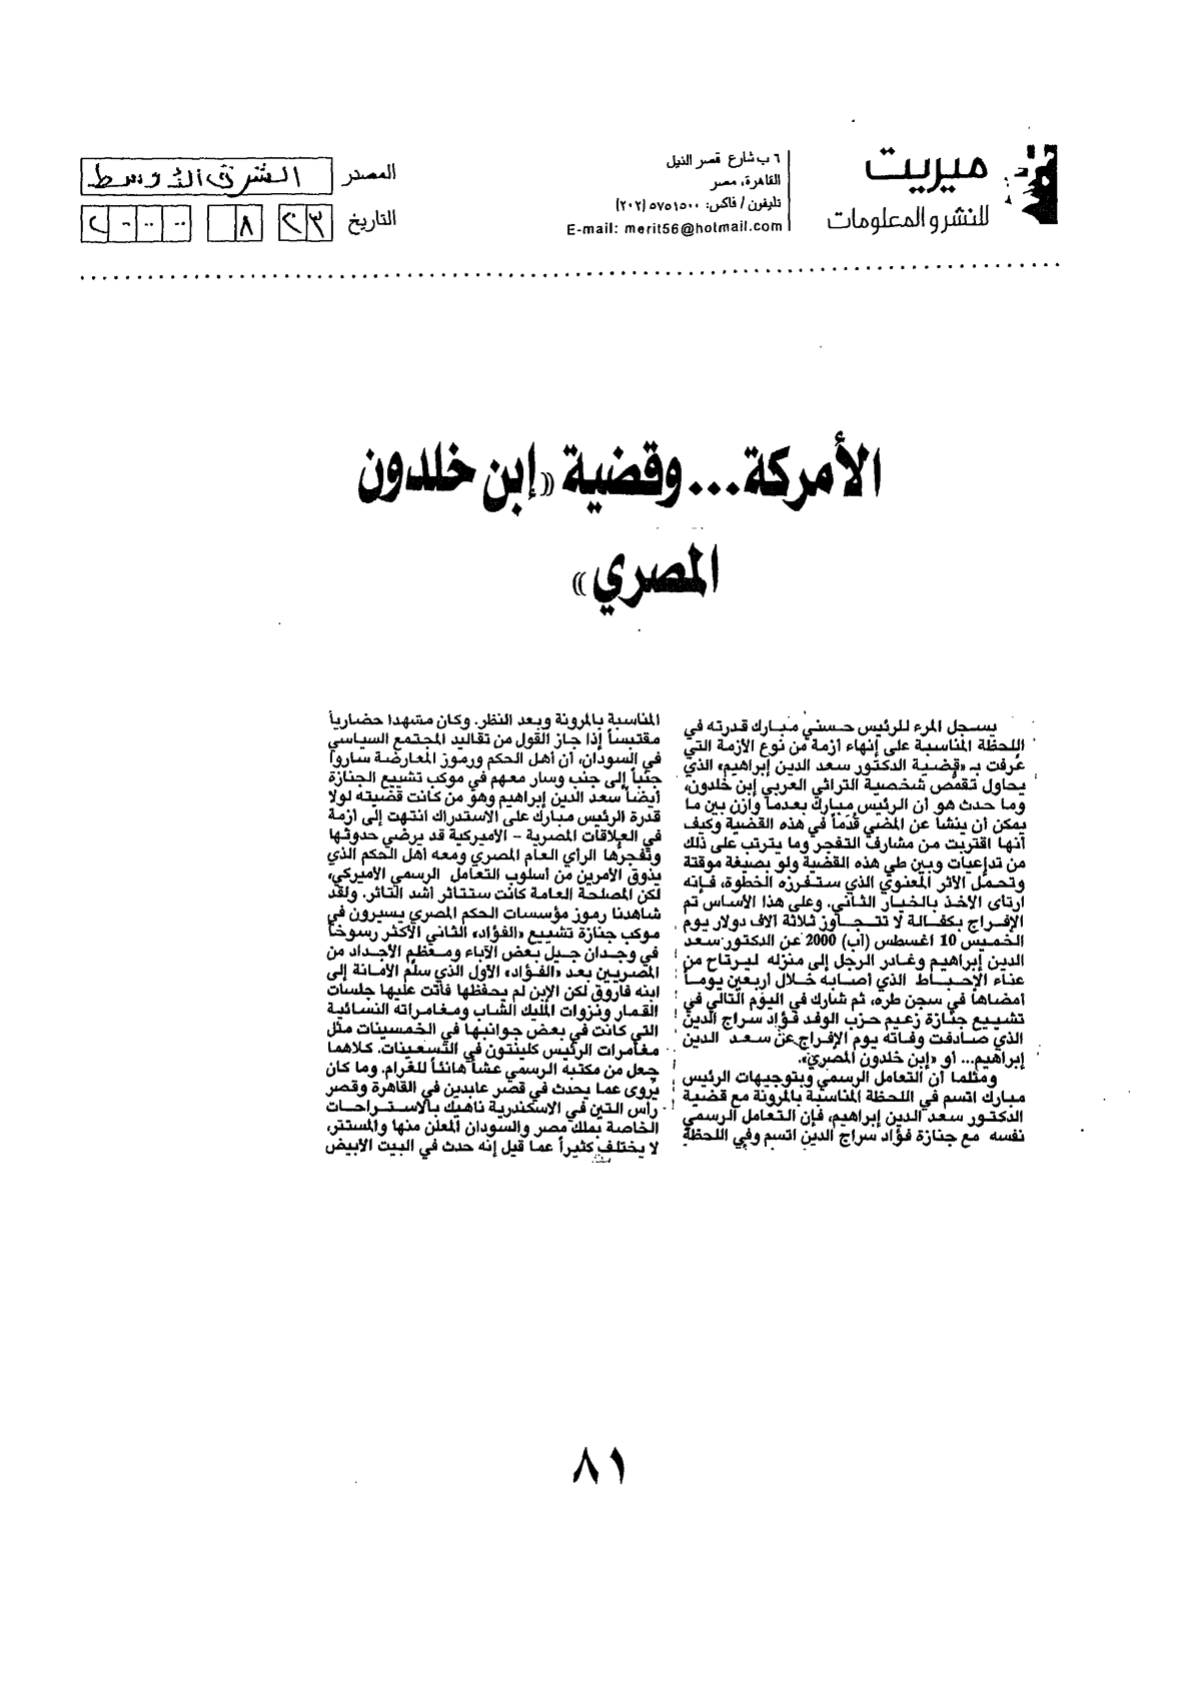 ميريت
للنشر والمعلومات
٦ ب شارع قصر النيل
القاهرة، مصر
تليفون / فاكس: ٥٧٥١٥٠٠ (٢٠٢)
E-mail: merit56@hotmail.com
المصدر الشرق الأوسط
التاريخ ٢٣ ٨ ٢٠٠٠
الأمركة... وقضية «إبن خلدون
المصري»
يسجل المرء للرئيس حسني مبارك قدرته في
اللحظة المناسبة على إنهاء أزمة من نوع الأزمة التي
عُرفت بـ «قضية الدكتور سعد الدين إبراهيم» الذي
يحاول تقمُّص شخصية التراثي العربي إبن خلدون،
وما حدث هو أن الرئيس مبارك بعدما وازن بين ما
يمكن أن ينشأ عن المضي قُدَماً في هذه القضية وكيف
أنها اقتربت من مشارف التفجر وما يترتب على ذلك
من تداعيات وبين طي هذه القضية ولو بصيغة موقتة
وتحمل الأثر المعنوي الذي ستفرزه الخطوة، فإنه
ارتأى الأخذ بالخيار الثاني. وعلى هذا الأساس تم
الإفراج بكفالة لا تتجاوز ثلاثة آلاف دولار يوم
الخميس 10 اغسطس (آب) 2000 عن الدكتور سعد
الدين إبراهيم وغادر الرجل إلى منزله ليرتاح من
عناء الإحباط الذي أصابه خلال أربعين يوماً
أمضاها في سجن طره، ثم شارك في اليوم التالي في
تشييع جنازة زعيم حزب الوفد فؤاد سراج الدين
الذي صادفت وفاته يوم الإفراج عن سعد الدين
إبراهيم... أو «إبن خلدون المصري».
ومثلما أن التعامل الرسمي وبتوجيهات الرئيس
مبارك اتسم في اللحظة المناسبة بالمرونة مع قضية
الدكتور سعد الدين إبراهيم، فإن التعامل الرسمي
نفسه مع جنازة فؤاد سراج الدين اتسم وفي اللحظة
المناسبة بالمرونة وبعد النظر. وكان مشهدا حضارياً
مقتبساً إذا جاز القول من تقاليد المجتمع السياسي
في السودان، أن أهل الحكم ورموز المعارضة ساروا
جنباً إلى جنب وسار معهم في موكب تشييع الجنازة
أيضاً سعد الدين إبراهيم وهو من كانت قضيته لولا
قدرة الرئيس مبارك على الاستدراك انتهت إلى أزمة
في العلاقات المصرية - الأميركية قد يرضي حدوثها
وتفجرها الرأي العام المصري ومعه أهل الحكم الذي
يذوق الأمرين من أسلوب التعامل الرسمي الأميركي،
لكن المصلحة العامة كانت ستتأثر أشد التأثر. ولقد
شاهدنا رموز مؤسسات الحكم المصري يسيرون في
موكب جنازة تشييع «الفؤاد» الثاني الأكثر رسوخاً
في وجدان جيل بعض الآباء ومعظم الأجداد من
المصريين بعد «الفؤاد» الأول الذي سلَّم الأمانة إلى
ابنه فاروق لكن الإبن لم يحفظها فأتت عليها جلسات
القمار ونزوات الملك الشاب ومغامراته النسائية
التي كانت في بعض جوانبها في الخمسينات مثل
مغامرات الرئيس كلينتون في التسعينات. كلاهما
جعل من مكتبه الرسمي عشاً هانئاً للغرام. وما كان
يُروى عما يحدث في قصر عابدين في القاهرة وقصر
رأس التين في الاسكندرية ناهيك بالاستراحات
الخاصة بملك مصر والسودان المعلن منها والمستتر،
لا يختلف كثيراً عما قيل إنه حدث في البيت الأبيض
٨١